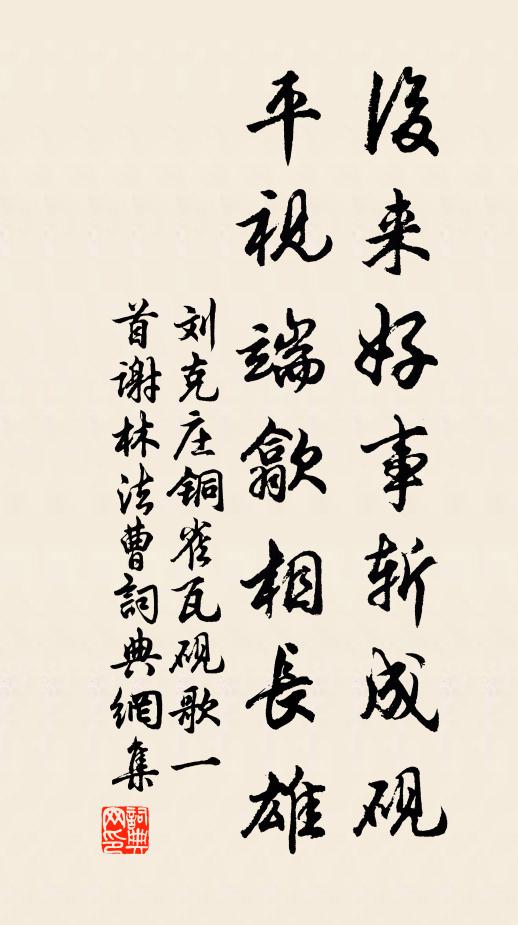 後来好事斩成砚
平視端歙相長雄
刘克庄铜雀瓦砚歌一
首谢林法曹詞典網集
詞典
网印